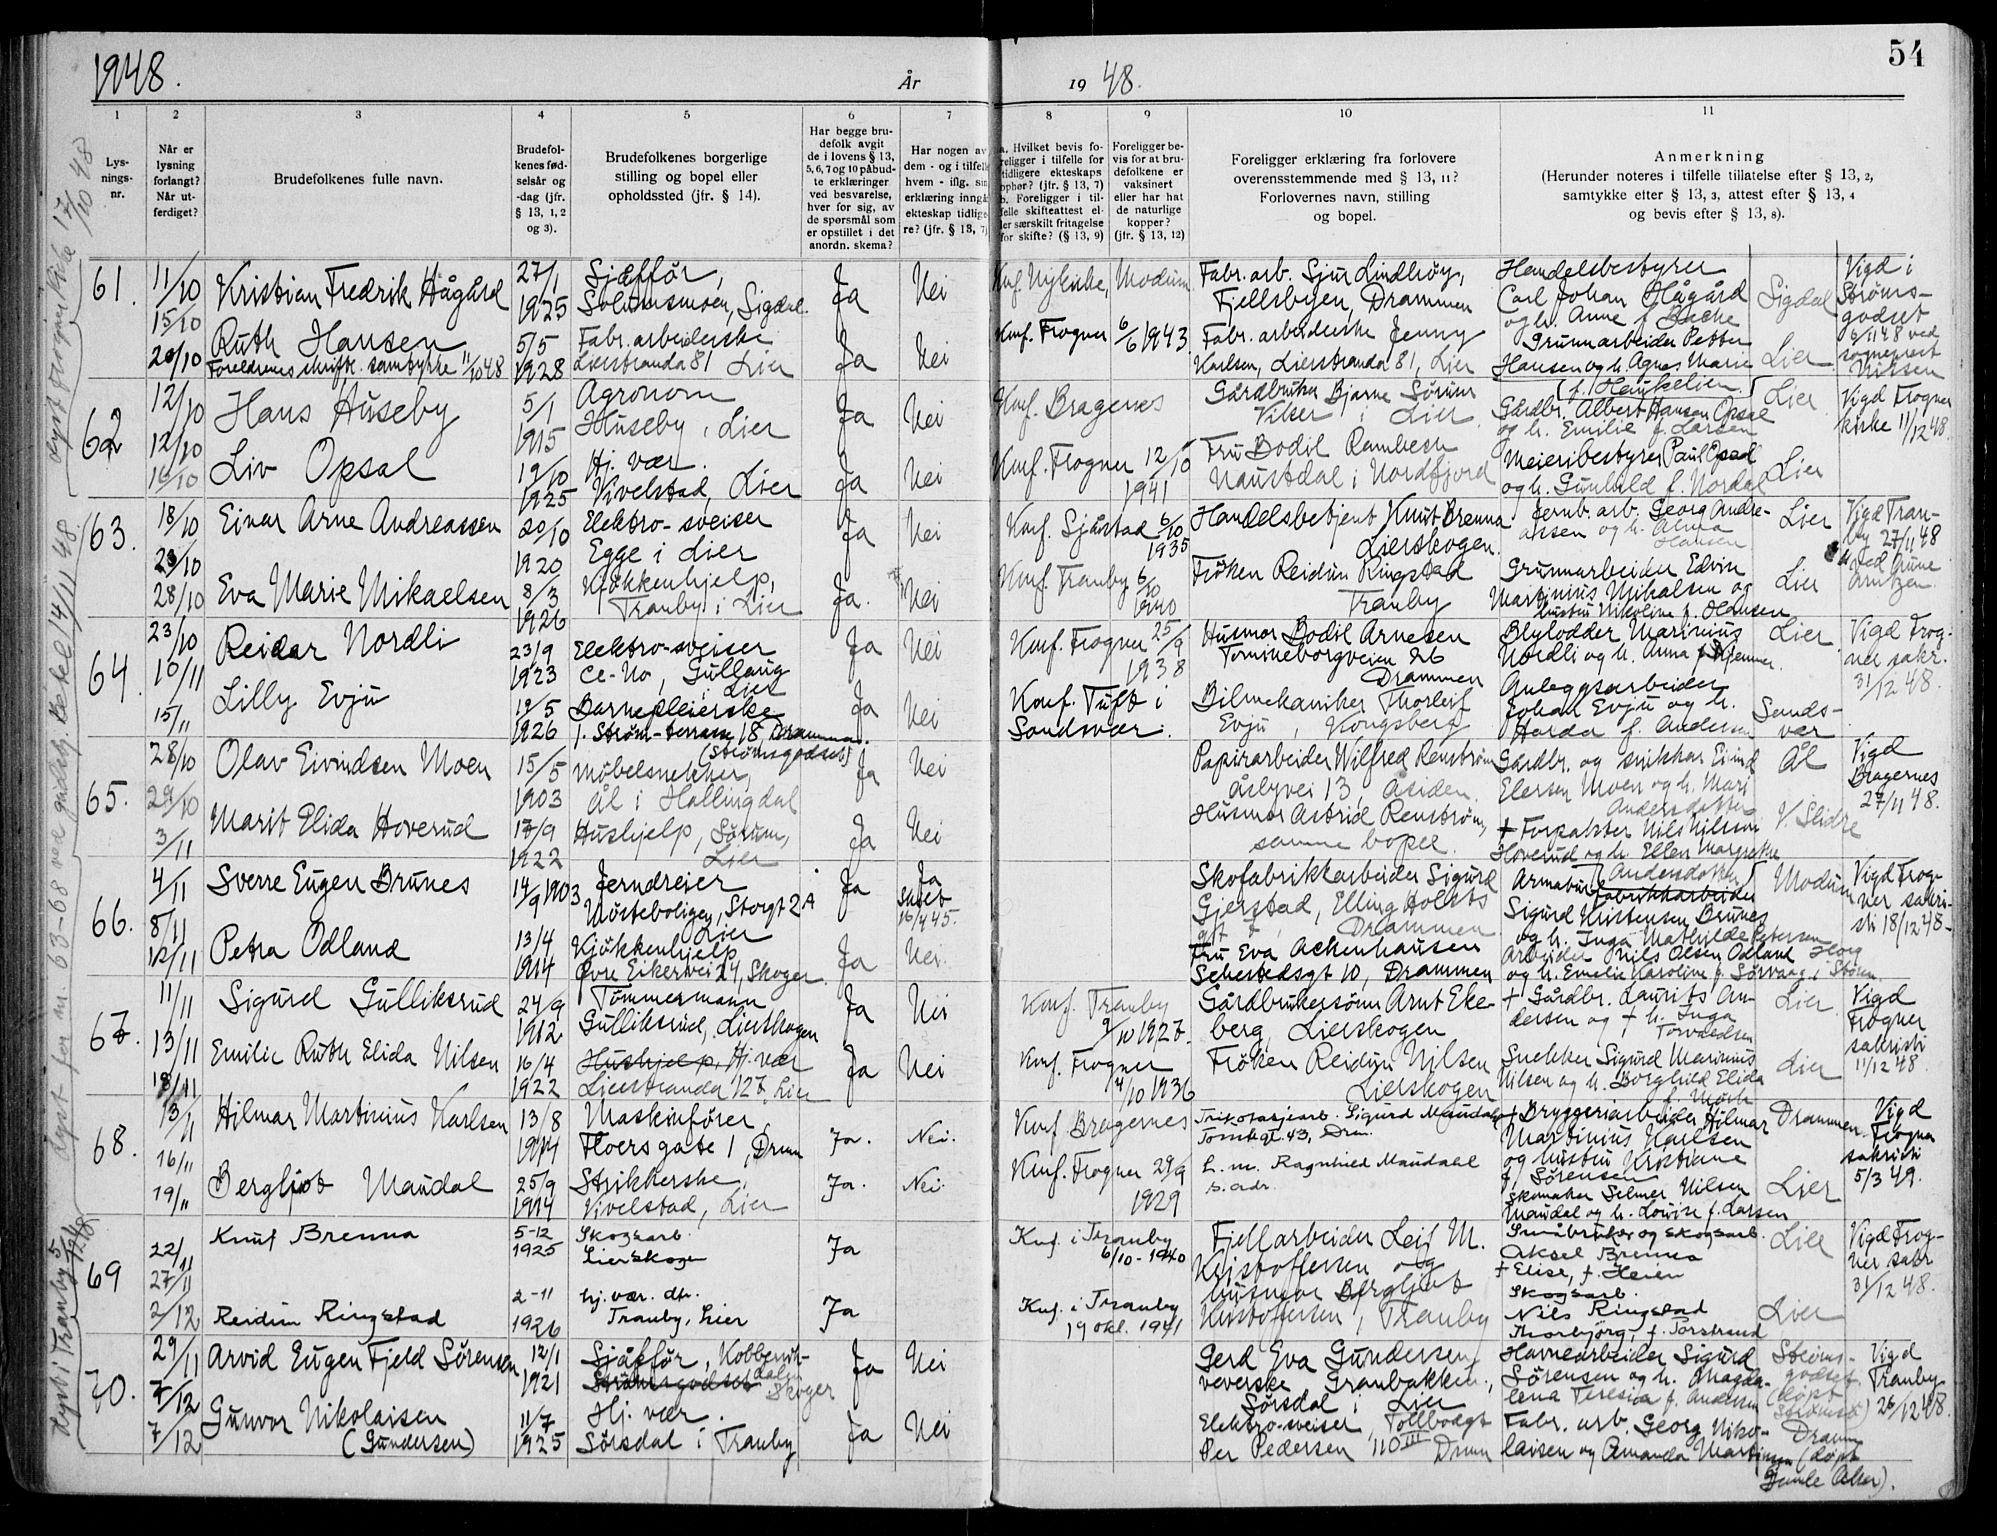 1948.
År
19 48.
54
1
2
3
4
5
6
7
8
9
10
11
Lys-
nings-
nr.
Når er
lysning
forlangt?
Når ut-
ferdiget?
Brudefolkenes fulle navn.
Brudefol-
kenes fød-
selsår og
-dag (jfr.
§ 13, 1, 2
og 3).
Brudefolkenes borgerlige
stilling og bopel eller
opholdssted (jfr. § 14).
Har begge bru-
defolk avgit
de i lovens § 13,
5, 6, 7 og 10 påbud-
te erklæringer
ved besvarelse,
hver for sig, av
de spørsmål som
er opstillet i det
anordn. skema?
Har nogen av
dem - og i tilfelle
hvem - iflg. sin
erklæring inngå
ekteskap tidlige-
re? (jfr. § 13, 7)
a. Hvilket bevis fo-
religger i tilfelle for
tidligere ekteskaps
ophør? (jfr. § 13, 7)
b. Foreligger i til-
felle skifteattest el-
ler særskilt fritagelse
for skifte? (§ 13, 9)
Foreligger be-
vis for at bru-
defolkene er
vaksinert
eller har hat
de naturlige
kopper?
(jfr. § 13, 12)
Foreligger erklæring fra forlovere
overensstemmende med § 13, 11?
Forlovernes navn, stilling
og bopel.
Anmerkning
(Herunder noteres i tilfelle tillatelse efter § 13, 2,
samtykke etter § 13, 3, attest efter § 13, 4
og bevis efter § 13, 8).
61.
11/10
15/10
20/10
Kristian Fredrik Hågård
27/1
1925
Sjåffør,
Solumsmoen, Sigdal.
Ja
Nei
Konf. Nykirke, Modum
Fabr. arb. Sjur Lindhøy,
Fjellsbyen, Drammen
Handelsbestyrer
Carl Johan Hågård
og h. Anne f.
Sigdal
Vigd i
Strøms-
godset
6/11 48 ved
sogneprest
Nilsen
Ruth Hansen
Foreldrenes skriftl. samtykke 11/10 48
5/5
1928
Fabr. arbeiderske
Lierstranda 81 Lier
Ja
Nei
Konf. Frogner 6/6 1943
Fabr. arbeiderske Jenny
Karlsen, Lierstranda 81, Lier
Grunnarbeider Petter
Hansen og h. Agnes Marie
f. Haukelien
Lier
62
12/10
12/10
16/10
Hans Huseby
5/1
1915
Agronom
Huseby, Lier
Ja
Nei
Konf. Bragenes
Gårdbruker Bjarne Sørum
i Lier
Gårdbr. Albert Hansen Opsal
og h. Emilie f. Larsen
Lier
Vigd Frogner
kirke 11/12 48.
Liv Opsal
19/10
1925
Hj. vær.
Vivelstad, Lier
Ja
Nei
Konf. Frogner 12/10
1941
Fru Bodil Rambech
Naustdal i Nordfjord
Meieribestyrer Paul Opsal
og h. Gunhild f. Nordal
Lier
63.
18/10
23/10
28/10
Einar Arne Andreassen
20/10
1920
Elektro-sveiser
Egge i Lier
Ja
Nei
Konf. Sjåstad 6/10
1935
Handelsbetjent Knut Brenna
Lierskogen.
Jernb. arb. Georg Andre-
assen og h. Alma
Hansen
Lier
Vigd Tran-
by 27/11 48
Eva Marie Mikaelsen
8/3
1926
Kjøkkenhjelp,
Tranby i Lier
Ja.
Nei
Konf. Tranby 6/10
1940
Frøken Reidun Ringstad
Tranby
Grunnarbeider Edvin
Martinius Mikalsen og
hustru Nikoline f. Hansen
Lier
64.
23/10
10/11
15/11
Reidar Nordli
23/9
1923
Elektro-sveiser
Ce-No, Gullaug
Lier
Ja
Nei
Konf. Frogner 25/9
1938
Husmor Bodil Arnesen
Tomineborgveien
Drammen
Blylodder Marinius
Nordli og h. Anna f.
Lier
Vigd Frog-
ner sakr.
31/12 48.
Lilly Evju
19/5
1926
Barnepleierske
f. Strøm-terrasse 18 Drammen.
(Strømsgodset)
Ja
Nei
Konf. Tuft i
Sandsvær.
Bilmekaniker Thorleif
Evju, Kongsberg
Anleggsarbeider
Johan Evju og h.
f. Andersen
Sands-
vær
65.
28/10
29/10
3/11
Olav Eivindsen Moen
15/5
1903
Møbelsnekker,
Ål i Hallingdal
Ja
Nei
Papirarbeider Wilfred Renstrøm
Åsbyvei 13 Åsiden
Gårdbr. og snikkar Eivind
Elersen Moen og h. Mari
Andersdatter
Ål
Vigd
Bragernes
27/11 48.
Marit Elida Hoverud
17/9
1922
Hushjelp, Sørum,
Lier
Ja
Nei
Husmor Astrid Renstrøm,
samme bopel.
† Forpakter Nils Nilssen
Hoverud og h. Ellen Margrethe
(Andersdatter)
V. Slidre
66.
4/11
8/11
12/11
Sverre Eugen Brunes
14/9 1903
Jerndreier
Høsteboligen, Storgt 2 A
Lier
Ja
Ja
16/4 45.
Skofabrikkarbeider Sigurd
Gjerstad, Elling Holsts
gt 7, Drammen
Armatur fabrikkarbeider
Sigurd Kristensen Brunes
og h. Inga Mathilde Petersen
Modum
Vigd Frog-
ner sakri-
sti 18/12 48.
Petra Odland
13/4
1914
Kjøkkenhjelp
Øvre Eikervei 24, Skoger
Ja
Nei.
Fru Eva Ackenhausen
Schestedsgt 10, Drammen
Arbeider Nils Olsen Odland
og h. Emelie Karoline f.
67.
11/11
13/11
18/11
Sigurd Gulliksrud
24/9
1912
Tømmermann
Gulliksrud, Lierskogen
Ja
Nei
Konf. Tranby
9/10 1927.
Gårdbrukersønn Arnt Eke-
berg, Lierskogen
† Gårdbr. Laurits An-
dersen og † h. Inga
Torvaldsen
Lier
Vigd
Frogner
sakristi
11/12 48
Emilie Ruth Elida Nilsen
16/4
1922
Hushjelp, Hj. vær
Lierstranda 127, Lier
Ja
Nei
Konf. Frogner
4/10 1936
Frøken Reidun Nilsen
Lierskogen
Snekker Sigurd Marinius
Nilsen og h. Borghild Elida
f. Mørk
Lier
68.
13/11
16/11
19/11
Hilmar Martinius Karlsen
13/8
1914
Maskinfører,
Floersgate 1, Drmn
Ja.
Nei.
Konf Bragernes
Trikotasjearb. Sigurd Maudal
Tomtegt. 43, Drm.
† Bryggeriarbeider Hilmar
Martinius Karlsen
og hustru Kristiane
f Sørensen
Drammen.
Vigd
Frogner
sakristi
5/3 49.
Bergljot Maudal
25/9
1914
Strikkerske,
Vivelstad, Lier
Ja.
Nei.
Konf. Frogner 29/9
1929
L. m. Ragnhild Maudahl
s. adr.
Skomaker Selmer Nilsen
Maudal og h. Lovise f. Larsen
Lier
69
22/11
27/11
2/12
Knut Brenna
5-12
1925
Skogsarb.
Lierskogen
Ja
Knf. i Tranby
6/10-1940
Fjellarbeider Leif M.
Kristoffersen og
husmor Bergljot
Kristoffersen, Tranby
Småbruker og skogsarb.
Aksel Brenna
† Elise, f. Heien
Lier
Vigd Frog-
ner sakr
31/12 48.
Reidun Ringstad
2-11
1926
hj. vær. dtr.
Tranby, Lier
Ja
Knf. i Tranby
19 okt. 1941
Skogsarb.
Nils Ringstad
Thorbjørg, f. Torstrand
Lier
70.
29/11
7/12
7/12
Arvid Eugen Fjeld Sørensen
12/1
1921
Sjåfför, Kobbervik-
dalen
Strømsgodset Skoger
Ja
Nei
Gerd Eva Gundersen
veverske Granbakken,
Sørsdal i Lier
Havnearbeider Sigurd
Sørensen og h. Magda-
lena Teresia f. Andersen
Strøms-
godset
(døpt
Strømsø)
Vigd
Tranby
26/12 48.
Gunvor Nikolaisen
(Gundersen)
11/7
1925
Hj. vær.
Sørsdal i Tranby
Ja
Nei
Elektro-sveiser, Tollbodgt
Per Pedersen 110 III Drmn
Fabr. arb. Georg Niko-
laisen og Amanda Martinsen
Dramm
(døpt
Gamle Aker).
Lyst Frogner kirke 17/10 48
Lyst for nr. 63-68 ved gudstj. 14/11 48
Lyst i Tranby 5/12 48